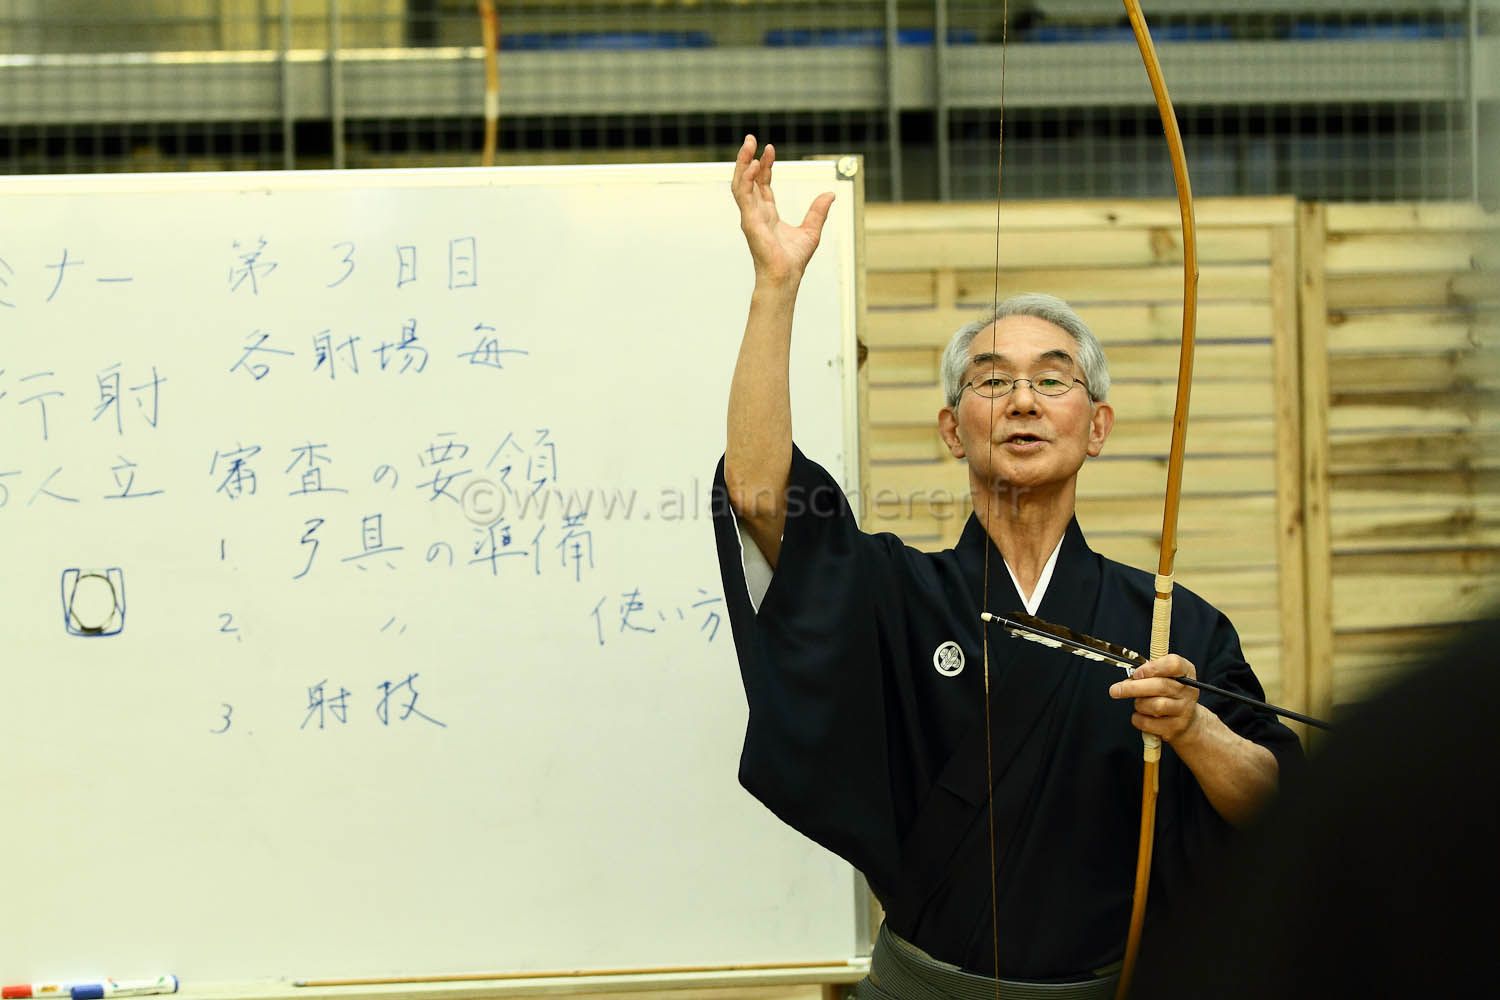 ミナー 第3日目
各射場毎
行射
審査の要領
五人立
1. 弓具の準備
2. 〃 使い方
3. 射技
©www.alainscherer.fr